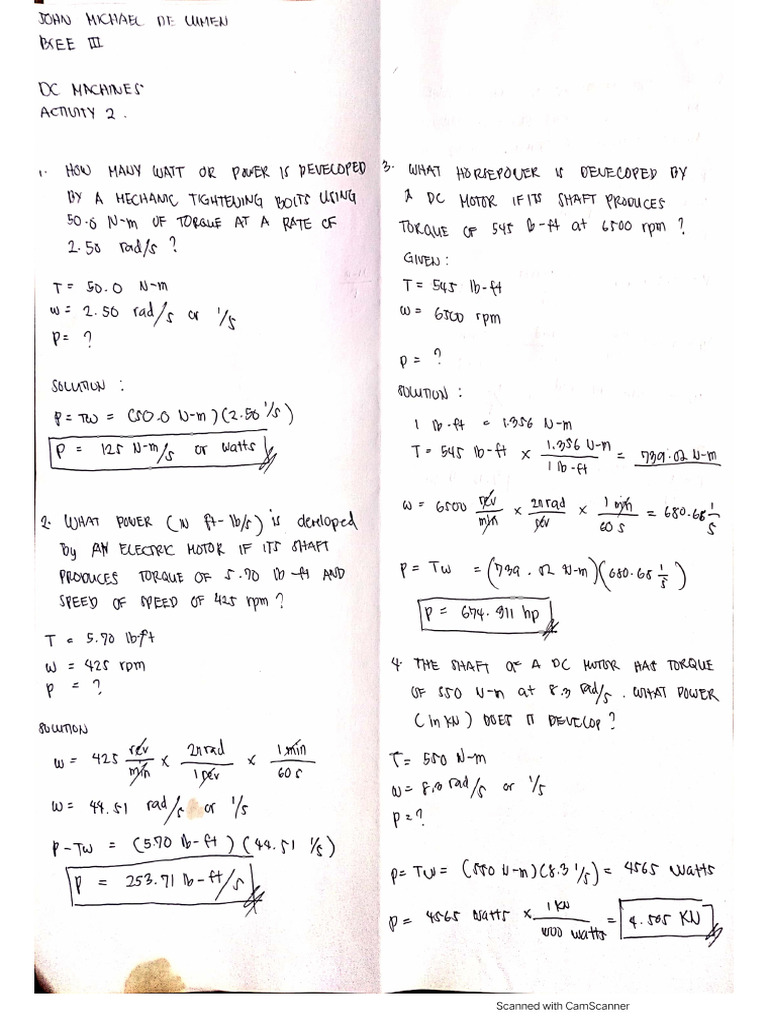 JOHN MICHAEL DE LUMEN
BSEE III
DC MACHINES
ACTIVITY 2.
1. HOW MANY WATT OR POWER IS DEVELOPED
BY A MECHANIC TIGHTENING BOLTS USING
50.0 N-m OF TORQUE AT A RATE OF
2.50 rad/s ?
T = 50.0 N-m
ω = 2.50 rad/s or 1/s
P = ?
SOLUTION :
P = Tω = (50.0 N-m)(2.50 1/s)
P = 125 N-m/s or watts
2. WHAT POWER (IN ft-lb/s) is developed
by AN ELECTRIC MOTOR IF ITS SHAFT
PRODUCES TORQUE OF 5.70 lb-ft AND
SPEED OF SPEED OF 425 rpm ?
T = 5.70 lb-ft
ω = 425 rpm
P = ?
SOLUTION
ω = 425 rev/min × 2π rad/1 rev × 1 min/60 s
ω = 44.51 rad/s or 1/s
P - Tω = (5.70 lb-ft)(44.51 1/s)
P = 253.71 lb-ft/s
3. WHAT HORSEPOWER IS DEVELOPED BY
A DC MOTOR IF ITS SHAFT PRODUCES
TORQUE OF 545 lb-ft at 6500 rpm ?
GIVEN :
T = 545 lb-ft
ω = 6500 rpm
P = ?
SOLUTION :
1 lb-ft = 1.356 N-m
T = 545 lb-ft × 1.356 N-m/1 lb-ft = 739.02 N-m
ω = 6500 rev/min × 2π rad/rev × 1 min/60 s = 680.68 1/s
P = Tω = (739.02 N-m)(680.68 1/s)
P = 674.311 hp
4. THE SHAFT OF A DC MOTOR HAS TORQUE
OF 550 N-m at 8.3 rad/s. WHAT POWER
(in KN) DOES IT DEVELOP ?
T = 550 N-m
ω = 8.3 rad/s or 1/s
P = ?
P = Tω = (550 N-m)(8.3 1/s) = 4565 watts
P = 4565 watts × 1 KN/1000 watts = 4.565 KN
Scanned with CamScanner